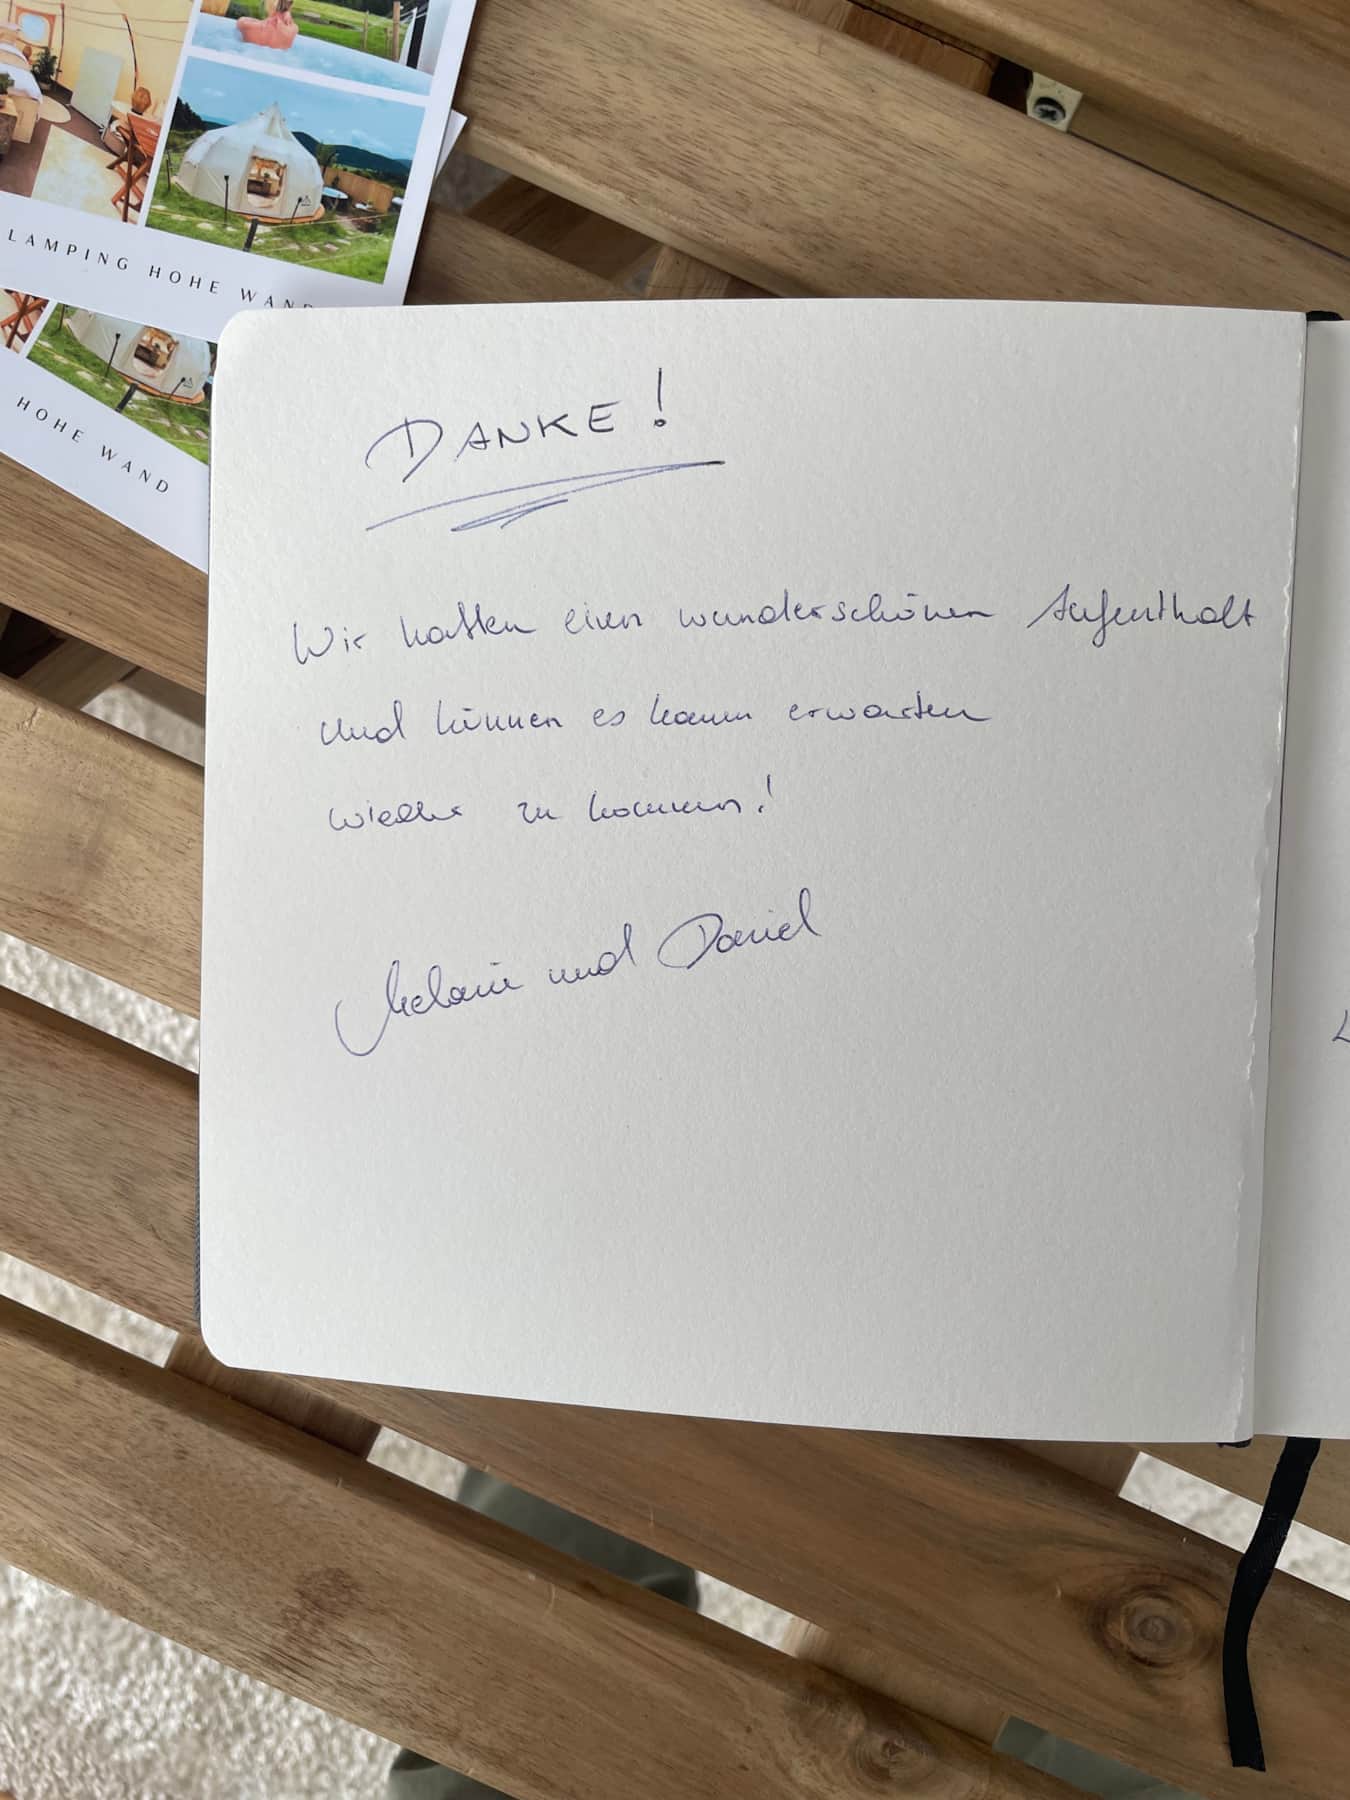 LAMPING HOHE WAND
HOHE WAND
DANKE!
Wir hatten einen wunderschönen Aufenthalt
und können es kaum erwarten
wieder zu kommen!
Melanie und Daniel